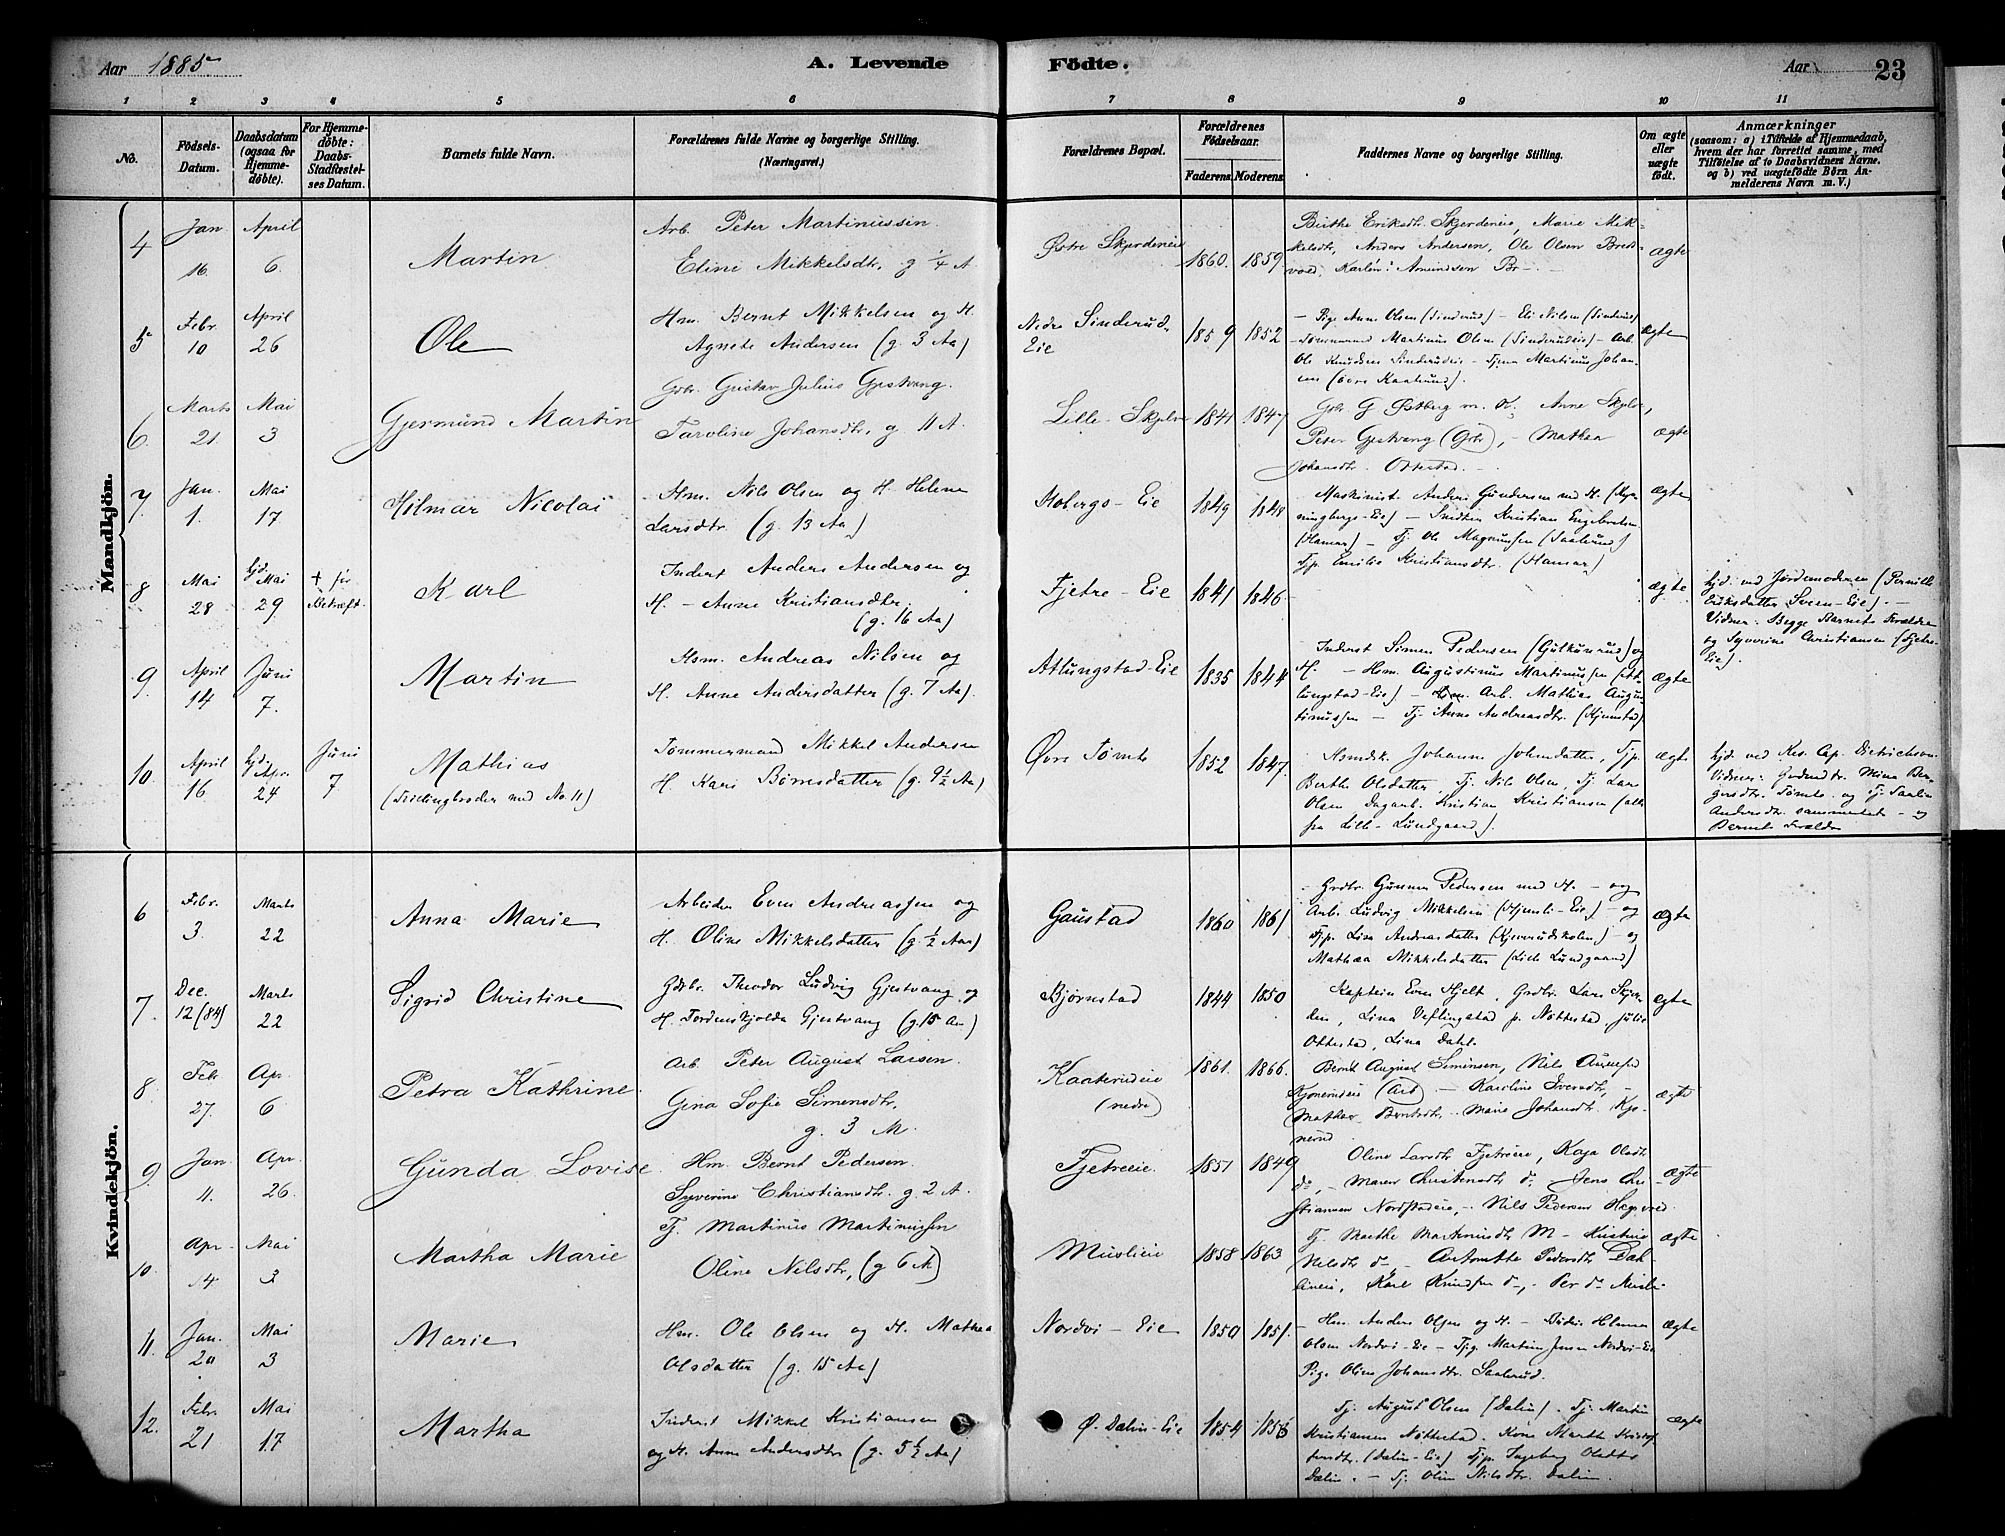 Aar 1885
A. Levende Fødte.
Aar
23
1 2 3 4 5 6 7 8 9 10 11
No.
Fødsels-Datum.
Daabsdatum (ogsaa for Hjemme-døbte).
For Hjemme-døbte: Daabs-Stadfæstel-ses Datum.
Barnets fulde Navn.
Forældrenes fulde Navne og borgerlige Stilling. (Næringsvei.)
Forældrenes Bopæl.
Forældrenes Fødselsaar.
Faderens. Moderens.
Faddernes Navne og borgerlige Stilling.
Om ægte eller uægte født.
Anmærkninger (saasom: a) i Tilfælde af Hjemmedaab, hvem der har forrettet samme, med Tilføielse af to Daabsvidners Navne. og b) ved uægtefødte Børn An-melderens Navn m. V.)
Mandkjön.
4 Jan 16. April 6. Martin
Arb. Peter Martinussen
Eline Mikkelsdtr. g 1/4 A
Østre Skjerdeneie 1860. 1859
Birthe Eriksdtr Skjerdeneie, Marie Mik-
kelsdtr, Anders Andersen, Ole Olsen
Amundsen
ægte
5 Febr 10 April 26 Ole
Hm. Bernt Mikkelsen og H.
Agnete Andersen (g. 3 Aa)
Nedre Sinderud-Eie 1859 1852
- Pige Anne Olsen (Sinderud) - Eli Nilsen (Sinderud)
Tømmermand Martinus Olsen (Sinderudeie) - Arb.
Ole Knudsen Sinderudeie - Tjener Martinus Johan-
sen
ægte
6. Marts 21. Mai 3 Gjermund Martin
Grbr. Gustav Julius Gjestvang.
Taroline Johansdtr, g 11 A.
Lille-Skjelve 1841 1847
Gbr. G Østberg m. K, Anne
Peter Gjestvang (Gbr), - Mathea
Johansdtr. Ottestad. -
ægte
7 Jan. 1. Mai 17 Hilmar Nicolai
Hsm. Nils Olsen og H. Helene
Larsdtr. (g. 13 Aa)
Stobergs-Eie 1849 1848
Maskinist Anders Gundersen med H.
- Snedker Kristian Engebretsen
(Hamar) - Tj. Ole Magnussen (Saalerud)
Tjp. Emilie Kristiansdtr. (Hamar)
ægte
8 Mai 28 hjd. Mai 29 + før Bekræft. Karl
Inderst Anders Andersen og
H. - Anne Kristiansdtr.
(g. 16 Aa)
Fjetre-Eie 1841 1846 -
ægte
hjd. ved Jordemoderen (Pernille
Eriksdatter Sveen-Eie). -
Vidner: Begge Barnets Forældre
og Syverine Christiansen (Fjetre-
Eie).
9. April 14 Juni 7. Martin
Hsm. Andreas Nilsen og
H. Anne Andersdatter (g. 7 Aa)
Atlungstad-Eie 1835 1844
Inderst Simen Pedersen og
H. - Hsm. Augustinus Martinussen (At-
lungstad-Eie) - Arb. Mathias Augus-
tinussen - Tj. Anne Andreasdtr.
ægte
10. April 16 hjd. Apr. 24 Juni 7 Mathias
(Tvillingbroder med No. 11)
Tømmermand Mikkel Andersen
H. Kari Børresdatter (g. 9 1/2 Aa)
Øvre Tømte 1852 1847.
Johanne Johnsdatter, Tjp.
Berthe Olsdatter, Tj. Nils Olsen, Tj. Lars
Olsen Dagarb. Kristian Kristiansen (alle
fra Lille-Lundgaard).
ægte
hjd ved Res. Cap. Dietrichson
Vidner: Mina
Tømte og Tj.
Andersdtr. sammesteds - og
Barnets Forældre
Kvindekjön.
6 Febr. 3. Marts 22 Anna Marie
Arbeider Even Andreassen og
H. Oline Mikkelsdatter (g. 1/2 Aar)
Gaustad 1860 1861
Grdbr. Gunnar Pedersen med H. - og
Arb. Ludvig Mikkelsen (Hjemli-Eie) - og
Tjp. Lina Andreasdatter (Kjeverudskolen) - og
Mathea Mikkelsdatter (Lille Lundgaard)
ægte
7. Dec. 12 (84) Marts 22 Sigrid Christine
Gdbr. Theodor Ludvig Gjestvang og
H. Tordenskjolda Gjestvang (g. 15 Aa)
Bjørnstad 1844 1850
Kaptein Even Hjelt, Grdbr. Lars
Lina Veflingstad p. Nøttestad, Julie
Ottestad, Lina Dahl.
ægte
8. Febr 27. Apr. 6 Petra Kathrine.
Arb. Peter August Larsen.
Gina Sofie Simensdtr,
g. 3 M.
Kaaterudeie (nedre) 1861. 1866.
Bernt August Simensen, Nils
(Arb) - Karoline Iversdtr, -
Mathea Berntsdtr. Marie Johansdtr. Kjo-
nerud
ægte
9 Jan 11. Apr. 26. Gunda Lovise.
Hm. Bernt Pedersen.
Syverine Christiansdtr. g. 2 A.
Fjetreeie. 1851 1849
Oline Larsdtr Fjetreeie, Kaja Olsdtr
do, - Maren Christensdtr do, Jens Chri-
stiansen Nordstadeie, - Nils Pedersen
ægte
10. Apr. 14 Mai 3 Martha Marie
Tj. Martinus Martinussen
Oline Nilsdtr, (g 6 A)
Muslieie 1858 1863
Tj. Marthe Martinusdtr M - Kristine
Nilsdtr do, - Antonette Pedersdtr Dæh-
lineie, Karl Knudsen do -, Per do Musli-
ægte
11. Jan. 20 Mai 3 Marie
Hm. Ole Olsen og H. Mathea
Olsdatter (g. 15 Aa)
Nordvi-Eie 1850 1851.
- Hm. Anders Olsen og H - Helene
Olsen Nordvi-Eie - Tjg. Martin Jensen Nordvi-Eie
Pige Oline Johansdtr. Saalerud.
ægte
12. Febr. 21 Mai 17 Martha
Inderst Mikkel Kristiansen
og H. Anne Andersdtr. (g. 5 1/2 Aa)
Ø. Dælin-Eie 1854 1856
Tj. August Olsen (Dælin). Tj. Martin
Kristiansen Nøttestad. Kone Marthe Kristof-
fersdtr. (Dælin-Eie) Tjp. Ingeborg Olsdtr
Dælin. - Tj. Olin Nilsdtr. Dælin.
ægte